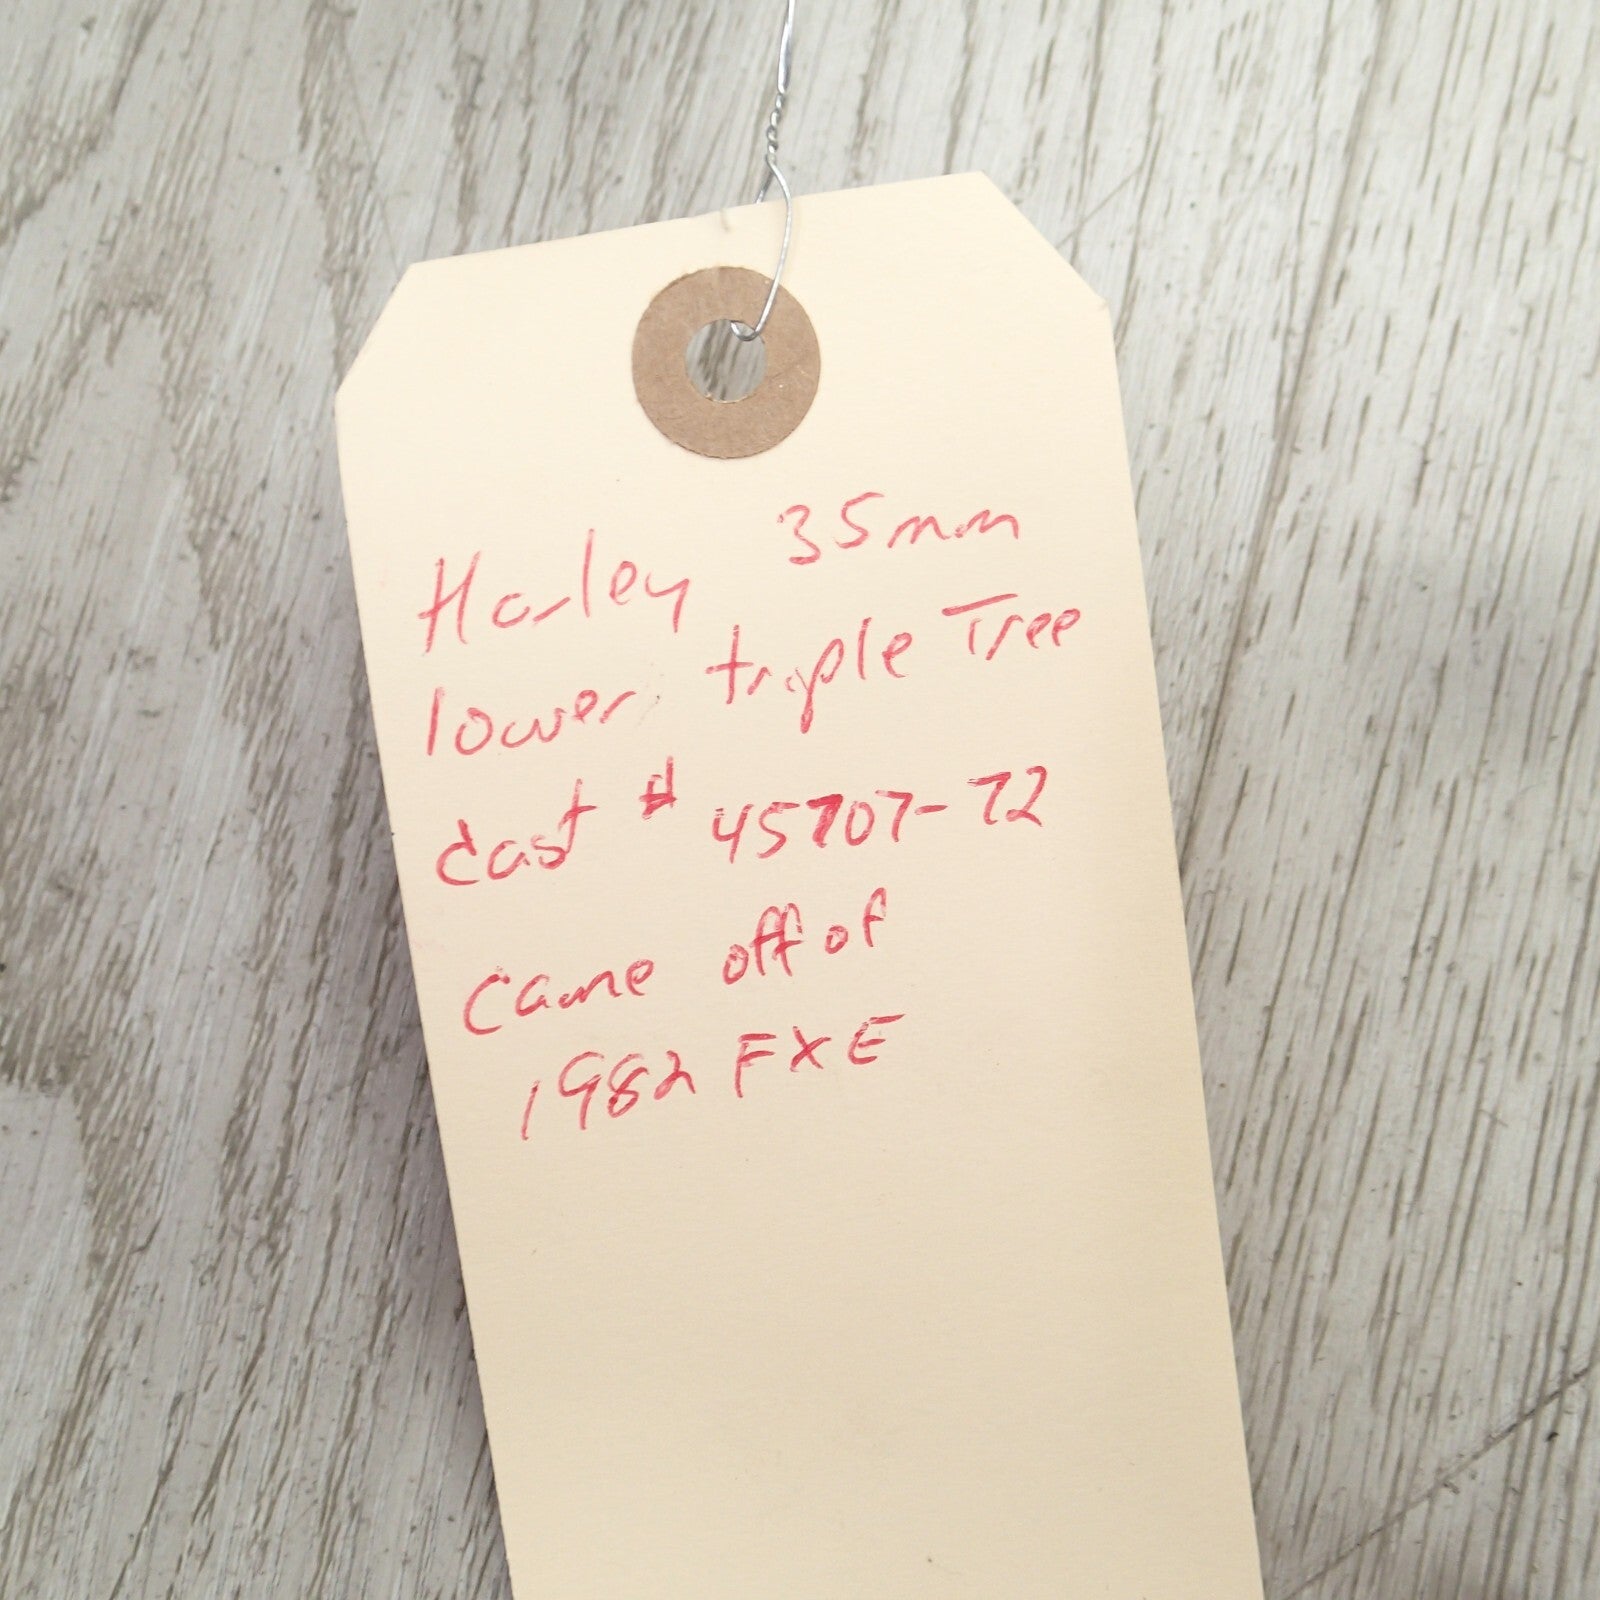 Harley 35mm
lower triple Tree
cast # 45707-72
came off of
1982 FXE